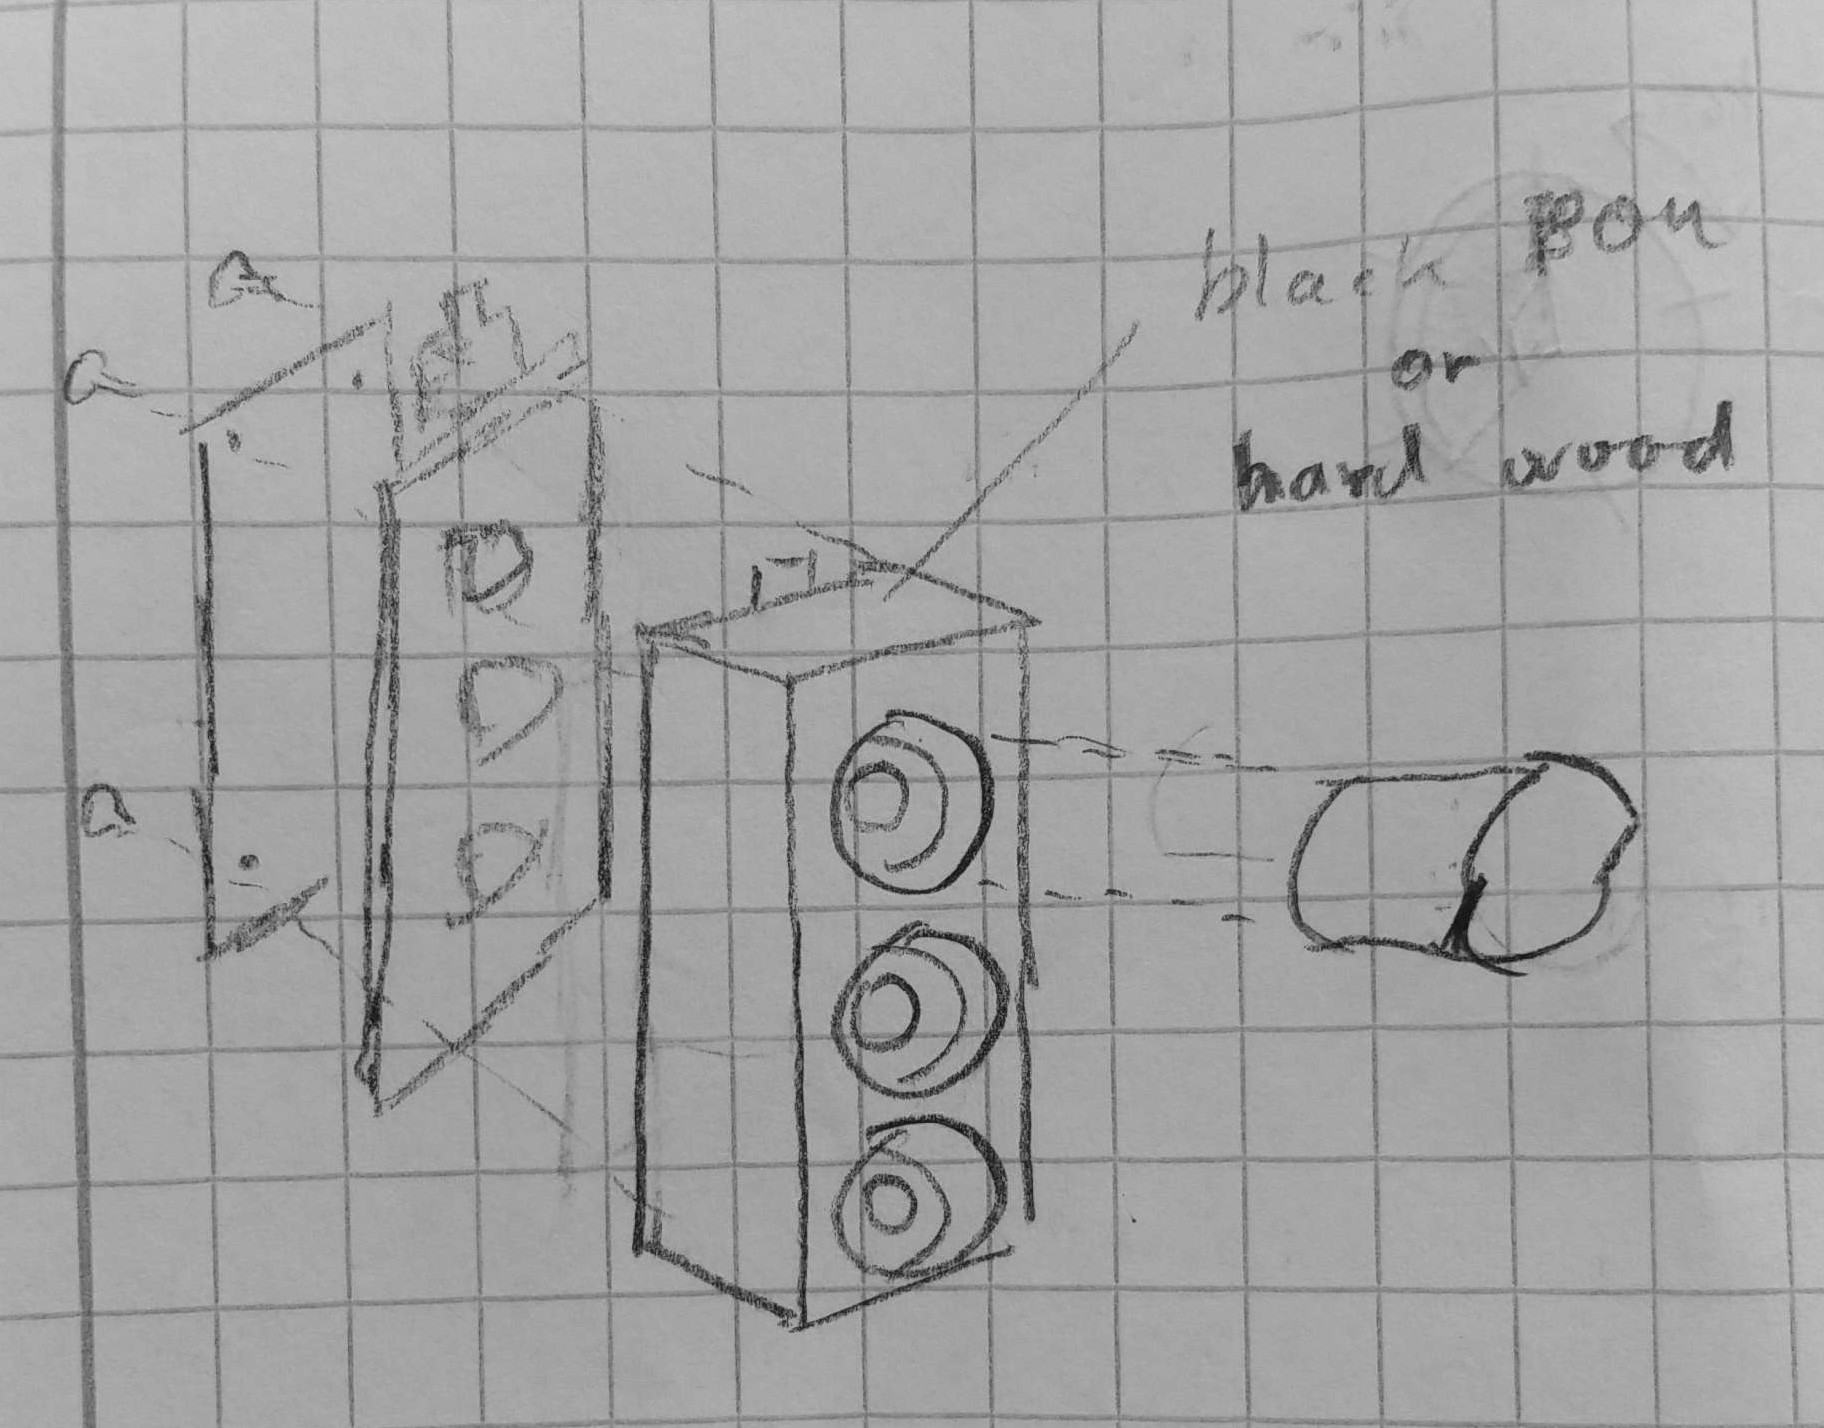 black POM
or
hard wood